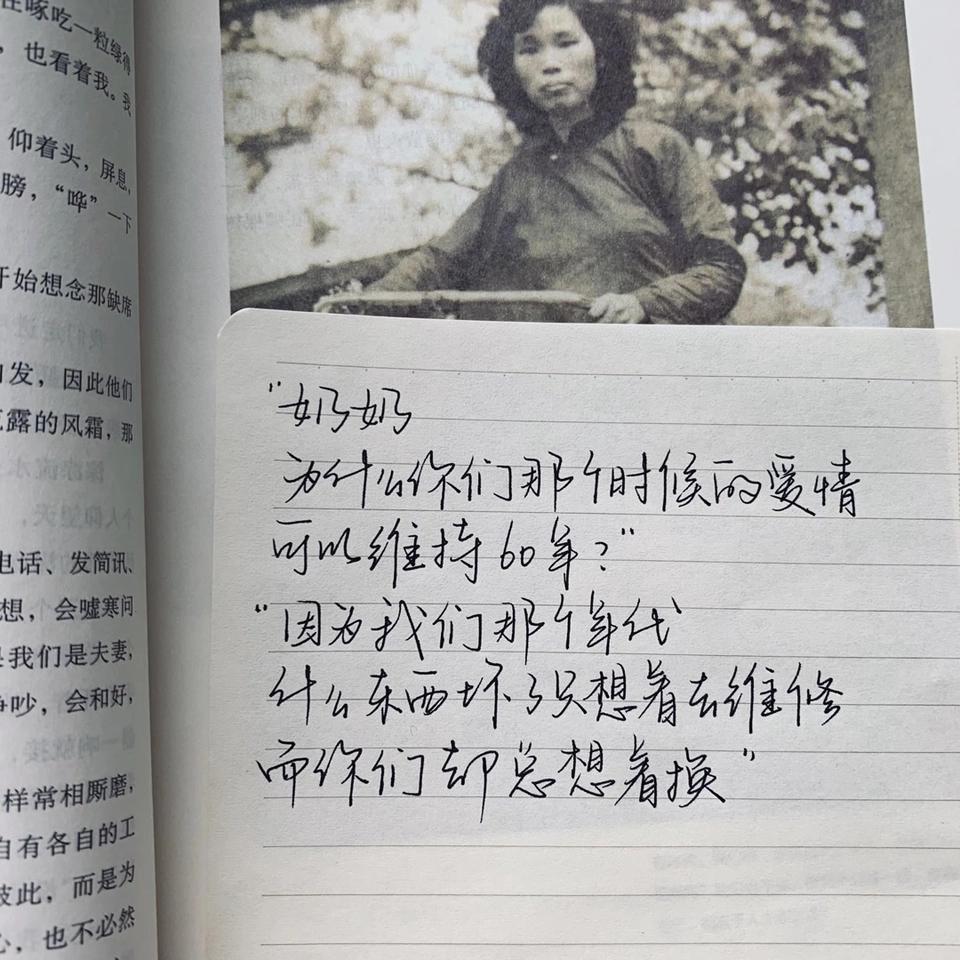 在啄吃一粒绿得
，也看着我。我
仰着头，屏息，
膀，“哗”一下
开始想念那缺席
发，因此他们
露的风霜，那
电话、发简讯、
想，会嘘寒问
我们是夫妻，
争吵，会和好，
样常相厮磨，
自有各自的工
彼此，而是为
心，也不必然
“奶奶
为什么你们那个时候的爱情
可以维持60年？”
“因为我们那个年代
什么东西坏了只想着去维修
而你们却总想着换”